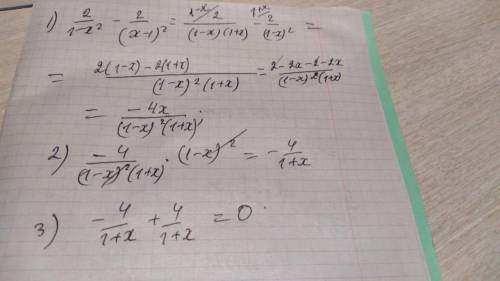 1) 2/(1-x²) - 2/(x-1)² = ^(1-x) 2/((1-x)(1+x)) - ^(1+x) 2/(1-x)² =
= (2(1-x)-2(1+x))/((1-x)²(1+x)) = (2-2x-2-2x)/((1-x)²(1+x))
= -4x/((1-x)²(1+x));
2) -4/((1-x)²(1+x)) · (1-x)² = -4/(1+x)
3) -4/(1+x) + 4/(1+x) = 0